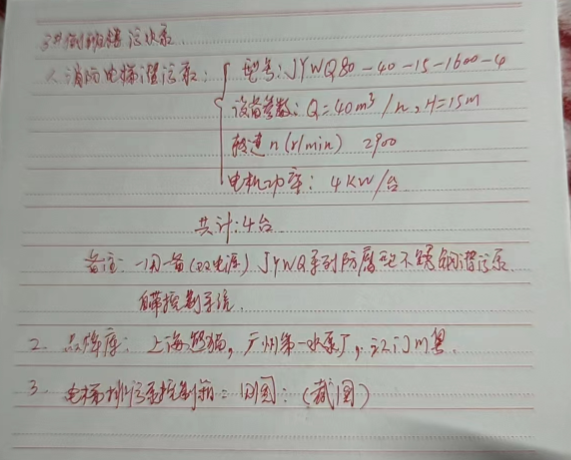 3#倒班楼污水泵
1、消防电梯潜污泵： 型号：JYWQ80-40-15-1600-4
设备参数：Q=40m³/h，H=15m
转速n(r/min) 2900
电机功率：4KW/台
共计：4台
备注：一用一备(双电源) JYWQ系列防腐型不锈钢潜污泵
自带控制系统.
2. 品牌库：上海熊猫，广州第一水泵厂，江门川粤.
3. 电梯排污泵控制箱：附图：(截图)